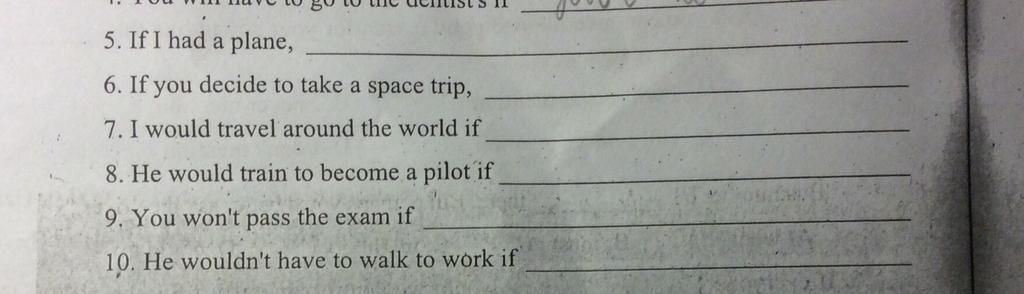 4. You will have to go to the dentist's if
5. If I had a plane,
6. If you decide to take a space trip,
7. I would travel around the world if
8. He would train to become a pilot if
9. You won't pass the exam if
10. He wouldn't have to walk to work if